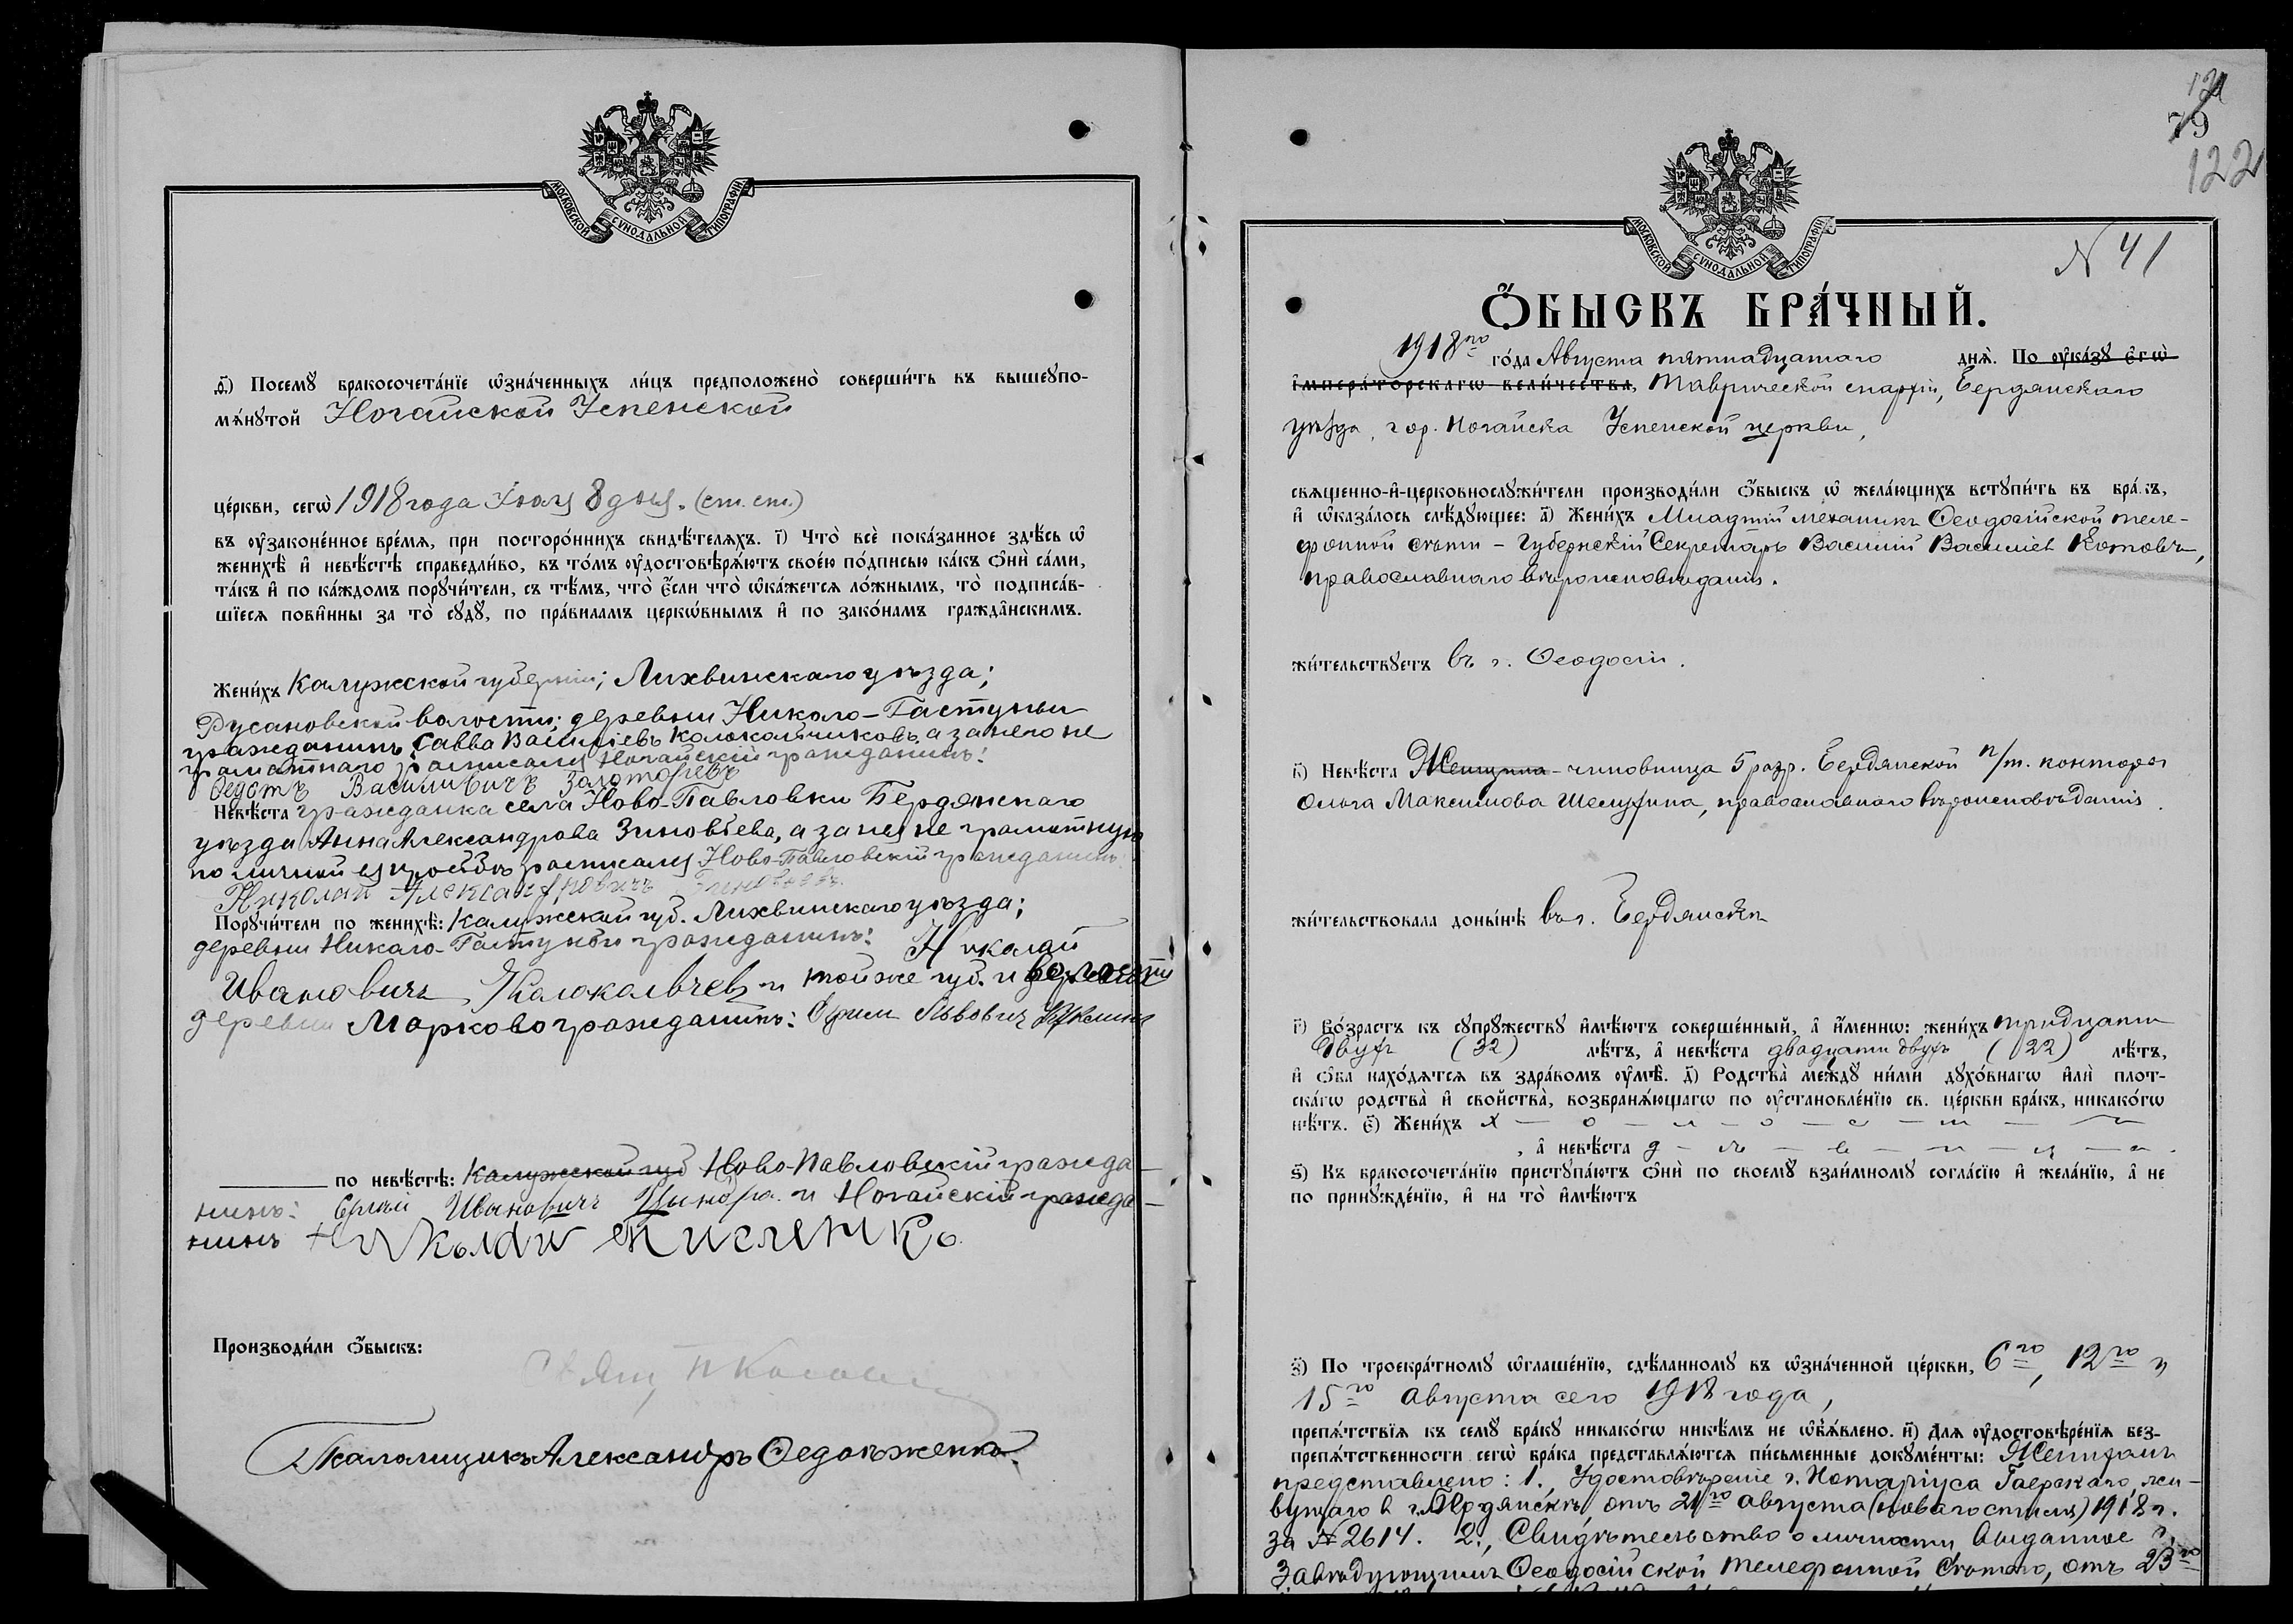 МОСКОВСКОЙ СѴНОДАЛЬНОЙ ТИПОГРАФІИ
д҃) Посемꙋ бракосочета́нїе ѡ҆зна́ченныхъ ли́цъ предположено̀ соверши́ть въ вышеꙋпо-
мѧ́нꙋтой Ногайской Успенской
це́ркви, сегѡ̀ 1918 года Іюля 8 дня. (ст. ст.)
въ ᲂу҆законе́нное вре́мѧ, при посторо́ннихъ свидѣ́телѧхъ. і҃) Что̀ всѐ пока́занное здѣ́сь ѡ҆
женихѣ̀ и҆ невѣ́стѣ справедли́во, въ то́мъ ᲂу҆достовѣрѧ́ютъ свое́ю по́дписью ка́къ ѻ҆нѝ са́ми,
та́къ и҆ по ка́ждомъ порꙋчи́тели, съ тѣ́мъ, что̀ є҆́сли что̀ ѡ҆ка́жетсѧ ло́жнымъ, то̀ подписа́в-
шїесѧ пови́нны за то̀ сꙋдꙋ̀, по пра́виламъ церкѡ́внымъ и҆ по зако́намъ гражда́нскимъ.
Жени́хъ Калужской губерніи; Лихвинскаго уѣзда;
Русановской волости; деревни Николо-Гастуньи
гражданинъ Савва Васильевъ Колокольчиковъ, а за него не
грамотнаго росписался Ногайскій гражданинъ:
Федотъ Васильвичъ Золоторевъ
Невѣ́ста гражданка села Ново-Павловки Бердянскаго
уѣзда Анна Александрова Зиновьева, а за нея не грамотную
по личной ея просьбѣ росписался Ново-Павловскій гражданинъ:
Николай Александровичъ Зиновьевъ
Порꙋчи́тели по женихѣ̀: Калужской губ. Лихвинскаго уѣзда;
деревни Николо-Гастуньи гражданинъ: Николай
Ивановичъ и той же губ. и волости
деревни Марково гражданинъ: Львович
по невѣ́стѣ: Калужской губ Ново-Павловскій гражда-
нинъ: Ивановичъ и Ногайскій гражда-
нинъ Кисленко
Производи́ли ѻ҆́быскъ:
Свящ.
Псаломщикъ Александръ
121
79
122
МОСКОВСКОЙ СѴНОДАЛЬНОЙ ТИПОГРАФІИ
N 41
Ѻ҆́БЫСКЪ БРА́ЧНЫЙ.
1918го го́да Августа пятнадцатаго днѧ̀. По ᲂу҆ка́зꙋ є҆гѡ̀
и҆мпера́торскагѡ вели́чества, Таврической епархіи, Бердянскаго
уѣзда, гор. Ногайска Успенской церкви,
свѧще́нно-и҆-церковнослꙋжи́тели производи́ли ѻ҆́быскъ ѡ҆ жела́ющихъ встꙋпи́ть въ бра́къ,
и҆ ѡ҆каза́лось слѣ́дꙋющее: а҃) Жени́хъ Младшій механикъ Ѳеодосійской теле-
фонной сѣти - Губернскій Секретарь Василій Васильевъ Котовъ,
православнаго вѣроисповѣданія.
жи́тельствꙋетъ въ г. Ѳеодосіи.
в҃) Невѣ́ста Женщина - чиновница 5 разр. Бердянской п/т. конторы
Ольга Максимова Шелухина, православнаго вѣроисповѣданія.
жи́тельствовала доны́нѣ въ г. Бердянскѣ
г҃) Во́зрастъ къ сꙋпрꙋ́жествꙋ и҆мѣ́ютъ соверше́нный, а҆ и҆́меннѡ: жени́хъ тридцати
двухъ (32) лѣ́тъ, а҆ невѣ́ста двадцати двухъ (22) лѣ́тъ,
и҆ ѻ҆́ба нахо́дѧтсѧ въ здра́вомъ ᲂу҆мѣ̀. д҃) Родства̀ междꙋ̀ ни́ми дꙋхо́внагѡ и҆лѝ плот-
ска́гѡ родства̀ и҆ свойства̀, возбранѧ́ющагѡ по ᲂу҆становле́нїю св. це́ркви бра́къ, никако́гѡ
нѣ́тъ. є҃) Жени́хъ х - о - л - о - с - т - ъ
, а҆ невѣ́ста д - ѣ - в - и - ц - а.
ѕ҃) Къ бракосочета́нїю пристꙋпа́ютъ ѻ҆нѝ по своемꙋ̀ взаи́мномꙋ согла́сїю и҆ жела́нїю, а҆ не
по принꙋжде́нїю, и҆ на то̀ и҆мѣ́ютъ
з҃) По троекра́тномꙋ ѡ҆глаше́нїю, сдѣ́ланномꙋ въ ѡ҆зна́ченной це́ркви, 6го, 12го и
15го августа сего 1918 года,
препѧ́тствїѧ къ семꙋ̀ бра́кꙋ никако́гѡ никѣ́мъ не ѡ҆б̾ѧ́влено. и҃) Длѧ ᲂу҆достовѣре́нїѧ без-
препѧ́тственности сегѡ̀ бра́ка представлѧ́ютсѧ пи́сьменные докꙋме́нты: Женихомъ
представлено: 1., Удостовѣреніе г. Нотаріуса Гаерскаго, жи-
вущаго въ г. Бердянскѣ, отъ 21го августа (новаго стиля) 1918 г.
за № 2614. 2., Свидѣтельство о личности, выданное г.
Завѣдующимъ Ѳеодосійской телефонной сѣтью, отъ 23го